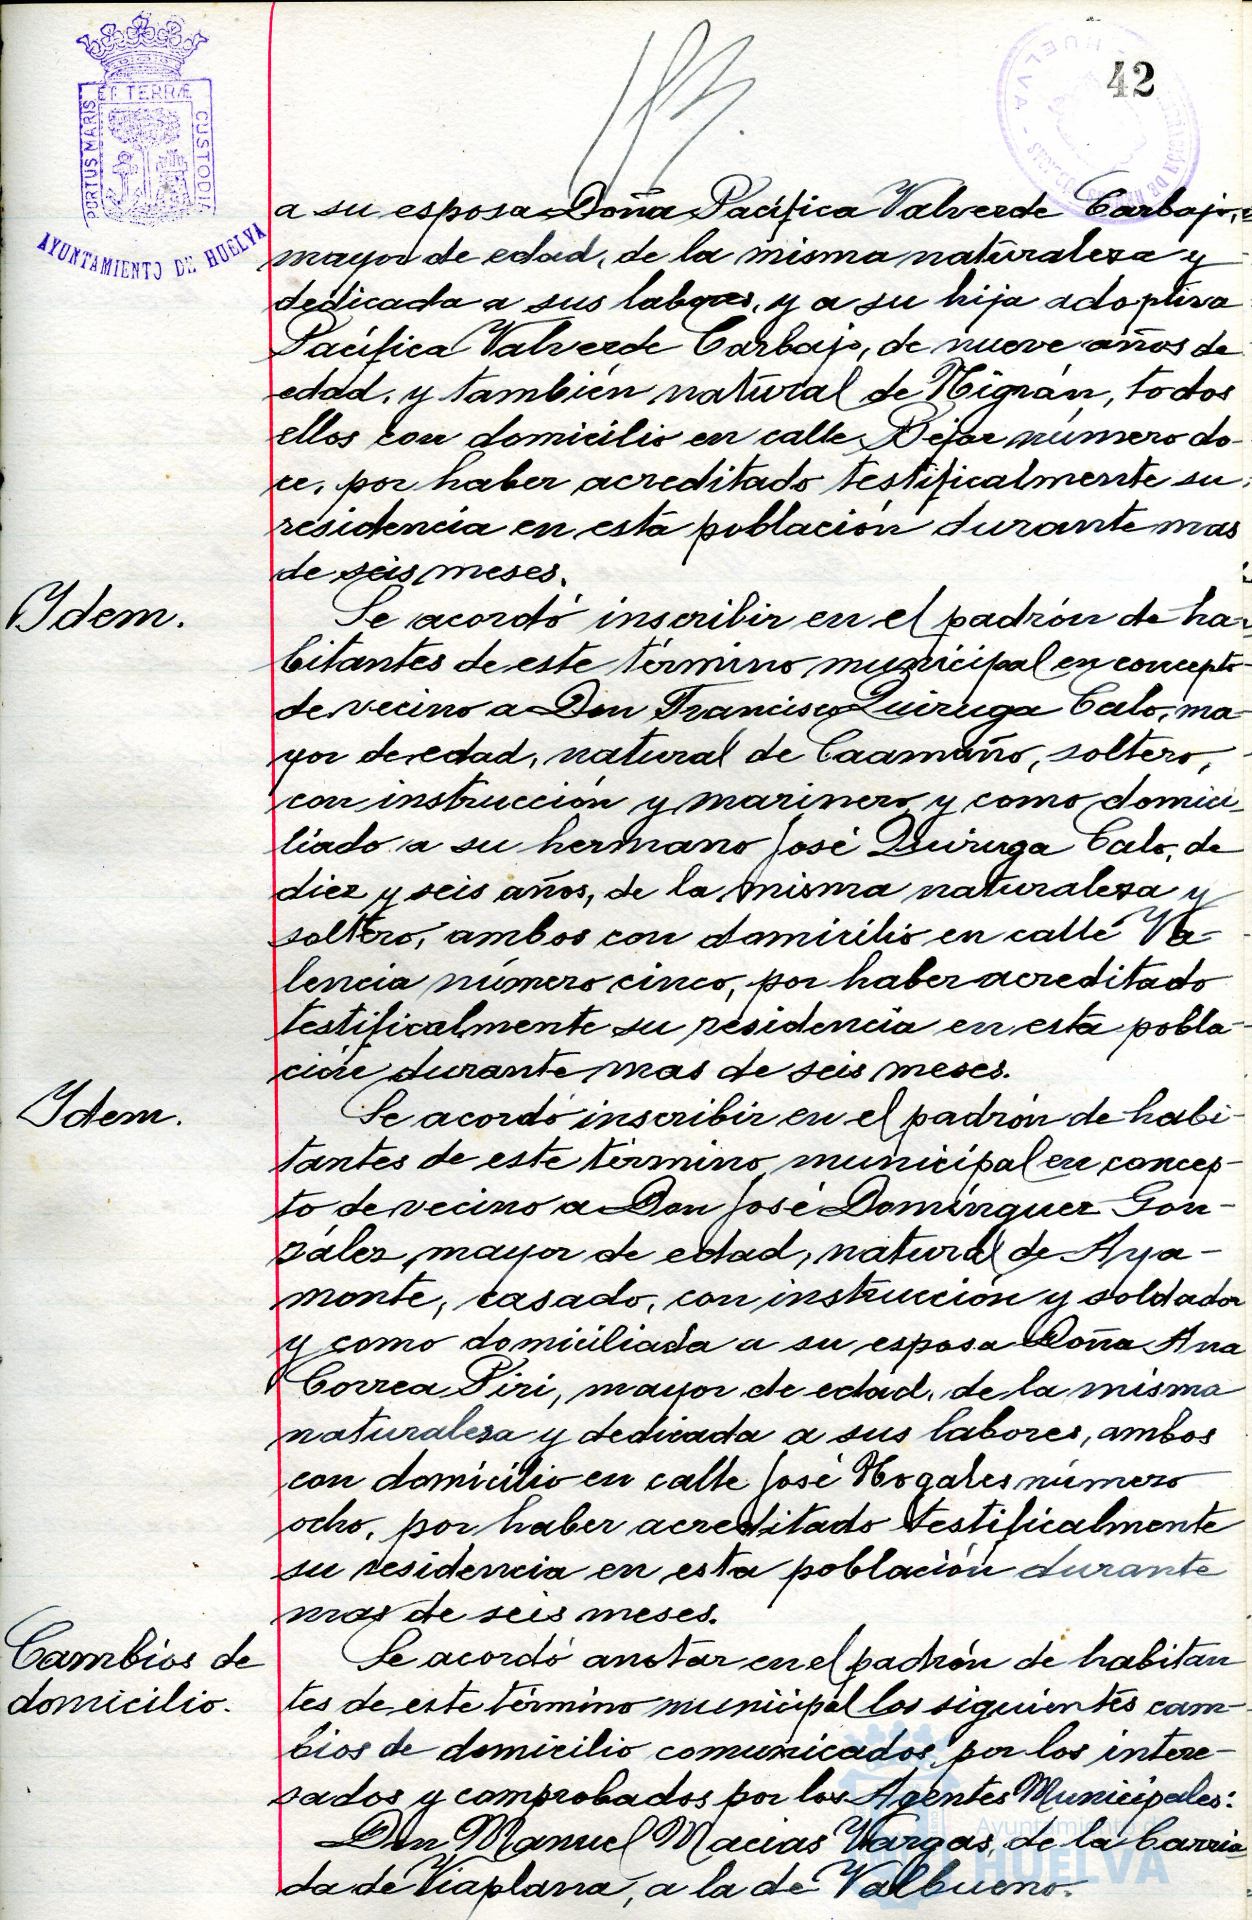 42
ET TERRÆ
PORTUS MARIS
CUSTODIA
AYUNTAMIENTO DE HUELVA
a su esposa Doña Pacífica Valverde Carbajo,
mayor de edad, de la misma naturaleza y
dedicada a sus labores, y a su hija adoptiva
Pacífica Valverde Carbajo, de nueve años de
edad, y también natural de Nigrán, todos
ellos con domicilio en calle Bejar número do-
ce, por haber acreditado testificalmente su
residencia en esta población durante mas
de seis meses.
Idem.
Se acordó inscribir en el padrón de ha-
bitantes de este término municipal en concepto
de vecino a Don Francisco Quiruga Calo, ma-
yor de edad, natural de Caamaño, soltero,
con instrucción y marinero y como domici-
liado a su hermano José Quiruga Calo, de
diez y seis años, de la misma naturaleza y
soltero, ambos con domicilio en calle Va-
lencia número cinco, por haber acreditado
testificalmente su residencia en esta pobla-
ción durante mas de seis meses.
Idem.
Se acordó inscribir en el padrón de habi-
tantes de este término municipal en concep-
to de vecino a Don José Domínguez Gon-
zález, mayor de edad, natural de Aya-
monte, casado, con instrucción y soldador
y como domiciliada a su esposa Doña Ana
Correa Piri, mayor de edad, de la misma
naturaleza y dedicada a sus labores, ambos
con domicilio en calle José Nogales número
ocho, por haber acreditado testificalmente
su residencia en esta población durante
mas de seis meses.
Cambios de
domicilio.
Se acordó anotar en el padrón de habitan
tes de este término municipal los siguientes cam-
bios de domicilio comunicados por los intere-
sados y comprobados por los Agentes Municipales:
Don Manuel Macias Vargas, de la barria
da de Viaplana, a la de Valbueno.
Ayuntamiento de
HUELVA